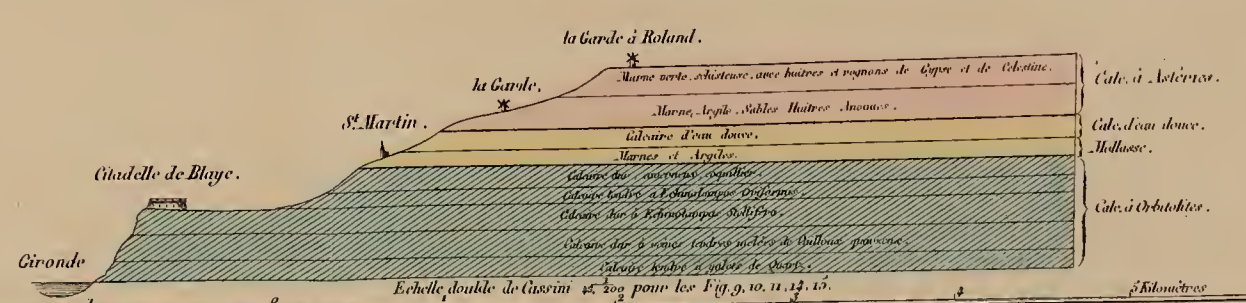 la Garde à Roland.
la Garde.
St Martin.
Citadelle de Blaye.
Gironde
Marne verte, schisteuse, avec huitres et rognons de Gypse et de Célestine.
Marne, Argile, Sables Huitres Anomies.
Calcaire d'eau douce.
Marnes et Argiles.
Calcaire dur, coquillier.
Calcaire tendre à Echinolampas Oviformis.
Calcaire dur à Echinolampas Stellifère.
Calcaire dur à veines tendres mêlées de Cailloux quarzeux.
Calcaire tendre à galets de Quartz.
Calc. à Astéries.
Calc. d'eau douce.
Mollasse.
Calc. à Orbitolites.
Echelle double de Cassini pour les Fig. 9, 10, 11, 14, 15.
1 2 3 4 5 Kilomètres